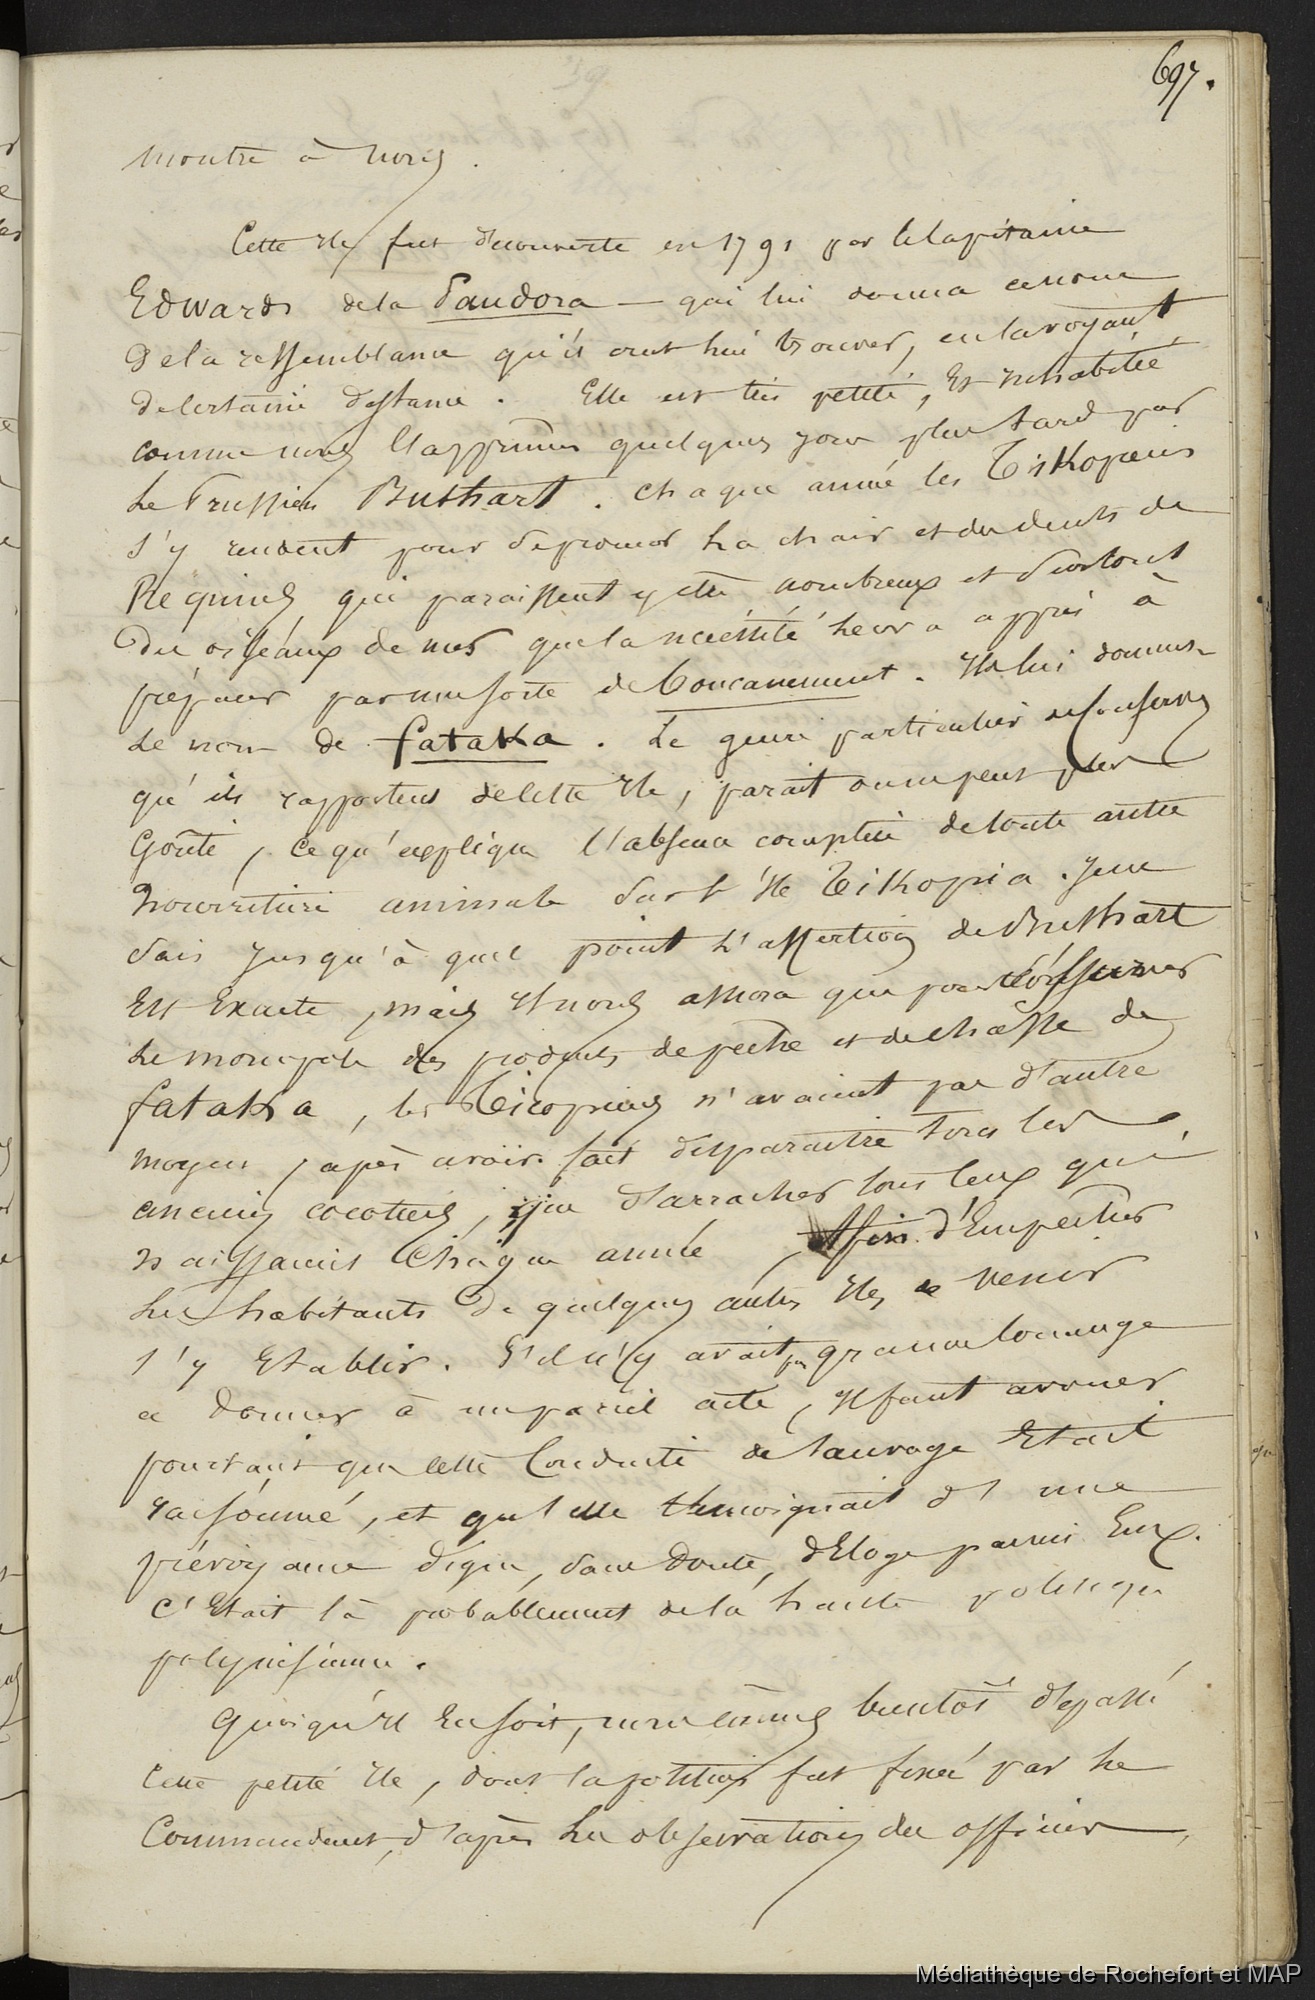 697.
montre à nous.
Cette Ile fut decouverte en 1791 par le Capitaine
Edwards de la Pandora — qui lui donna ce nom
de la ressemblance qu'il crut lui trouver, en la voyant
de certaine distance. Elle est très petite, Et inhabitée
comme nous l'apprimes quelques jours plus tard par
Le Prussien Buthart. Chaque année les Tikopiens
s'y rendent pour se procurer la chair et des dents de
Requins, qui paraissent y être nombreux et surtout
Des oiseaux de mer que la nécéssité leur a appris à
préparer par une sorte de Boucanement. Ils lui donnent
Le nom de fataka. Le genre particulier de Conserves
qu'ils rapportent de cette Ile, parait on ne peut plus
Goûté, Ce qu'explique l'absence complète de toute autre
Nourriture animale sur l'Ile Tikopia. Je ne
sais jusqu'à quel point l'assertion de Buthart
Est Exacte, mais Il nous assura que pour s'assurer
Le monopole des produits de pêche et de chasse de
fataka, les Ticopiens n'avaient pas d'autre
moyen, après avoir fait disparaître tous les
anciens cocotiers, que d'arracher tous ceux qui
naissaient Chaque année, Afin d'Empêcher
Les habitants de quelques autres Iles de venir
s'y Etablir. S'il n'y avait pas grande louange
a donner à un pareil acte, Il faut avouer
pourtant que cette Conduite de Sauvage Etait
raisonné, et qu'elle témoignait d'une
prévoyance digne, sans doute, d'Eloge parmi Eux.
C'Etait là probablement de la haute politique
polynésienne.
Quoiqu'il En soit, nous eûmes bientôt dépassé
Cette petite Ile, dont la position fut fixée par le
Commandant, d'après les observations des officiers,
Médiathèque de Rochefort et MAP